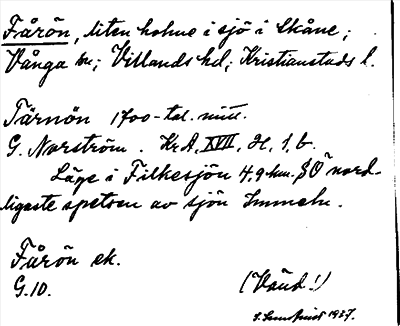 Fårön, liten holme i sjö i Skåne;
Vånga sn; Villands hd; Kristianstads l.
Tärnön 1700-tal. mitt.
G. Norström. Kr. A. XVII, H. 1, b.
Läge i Filkesjön 4.9 km. SÖ nord-
ligaste spetsen av sjön Immeln.
Fårön ek.
G.10.
(Vänd!)
1937.